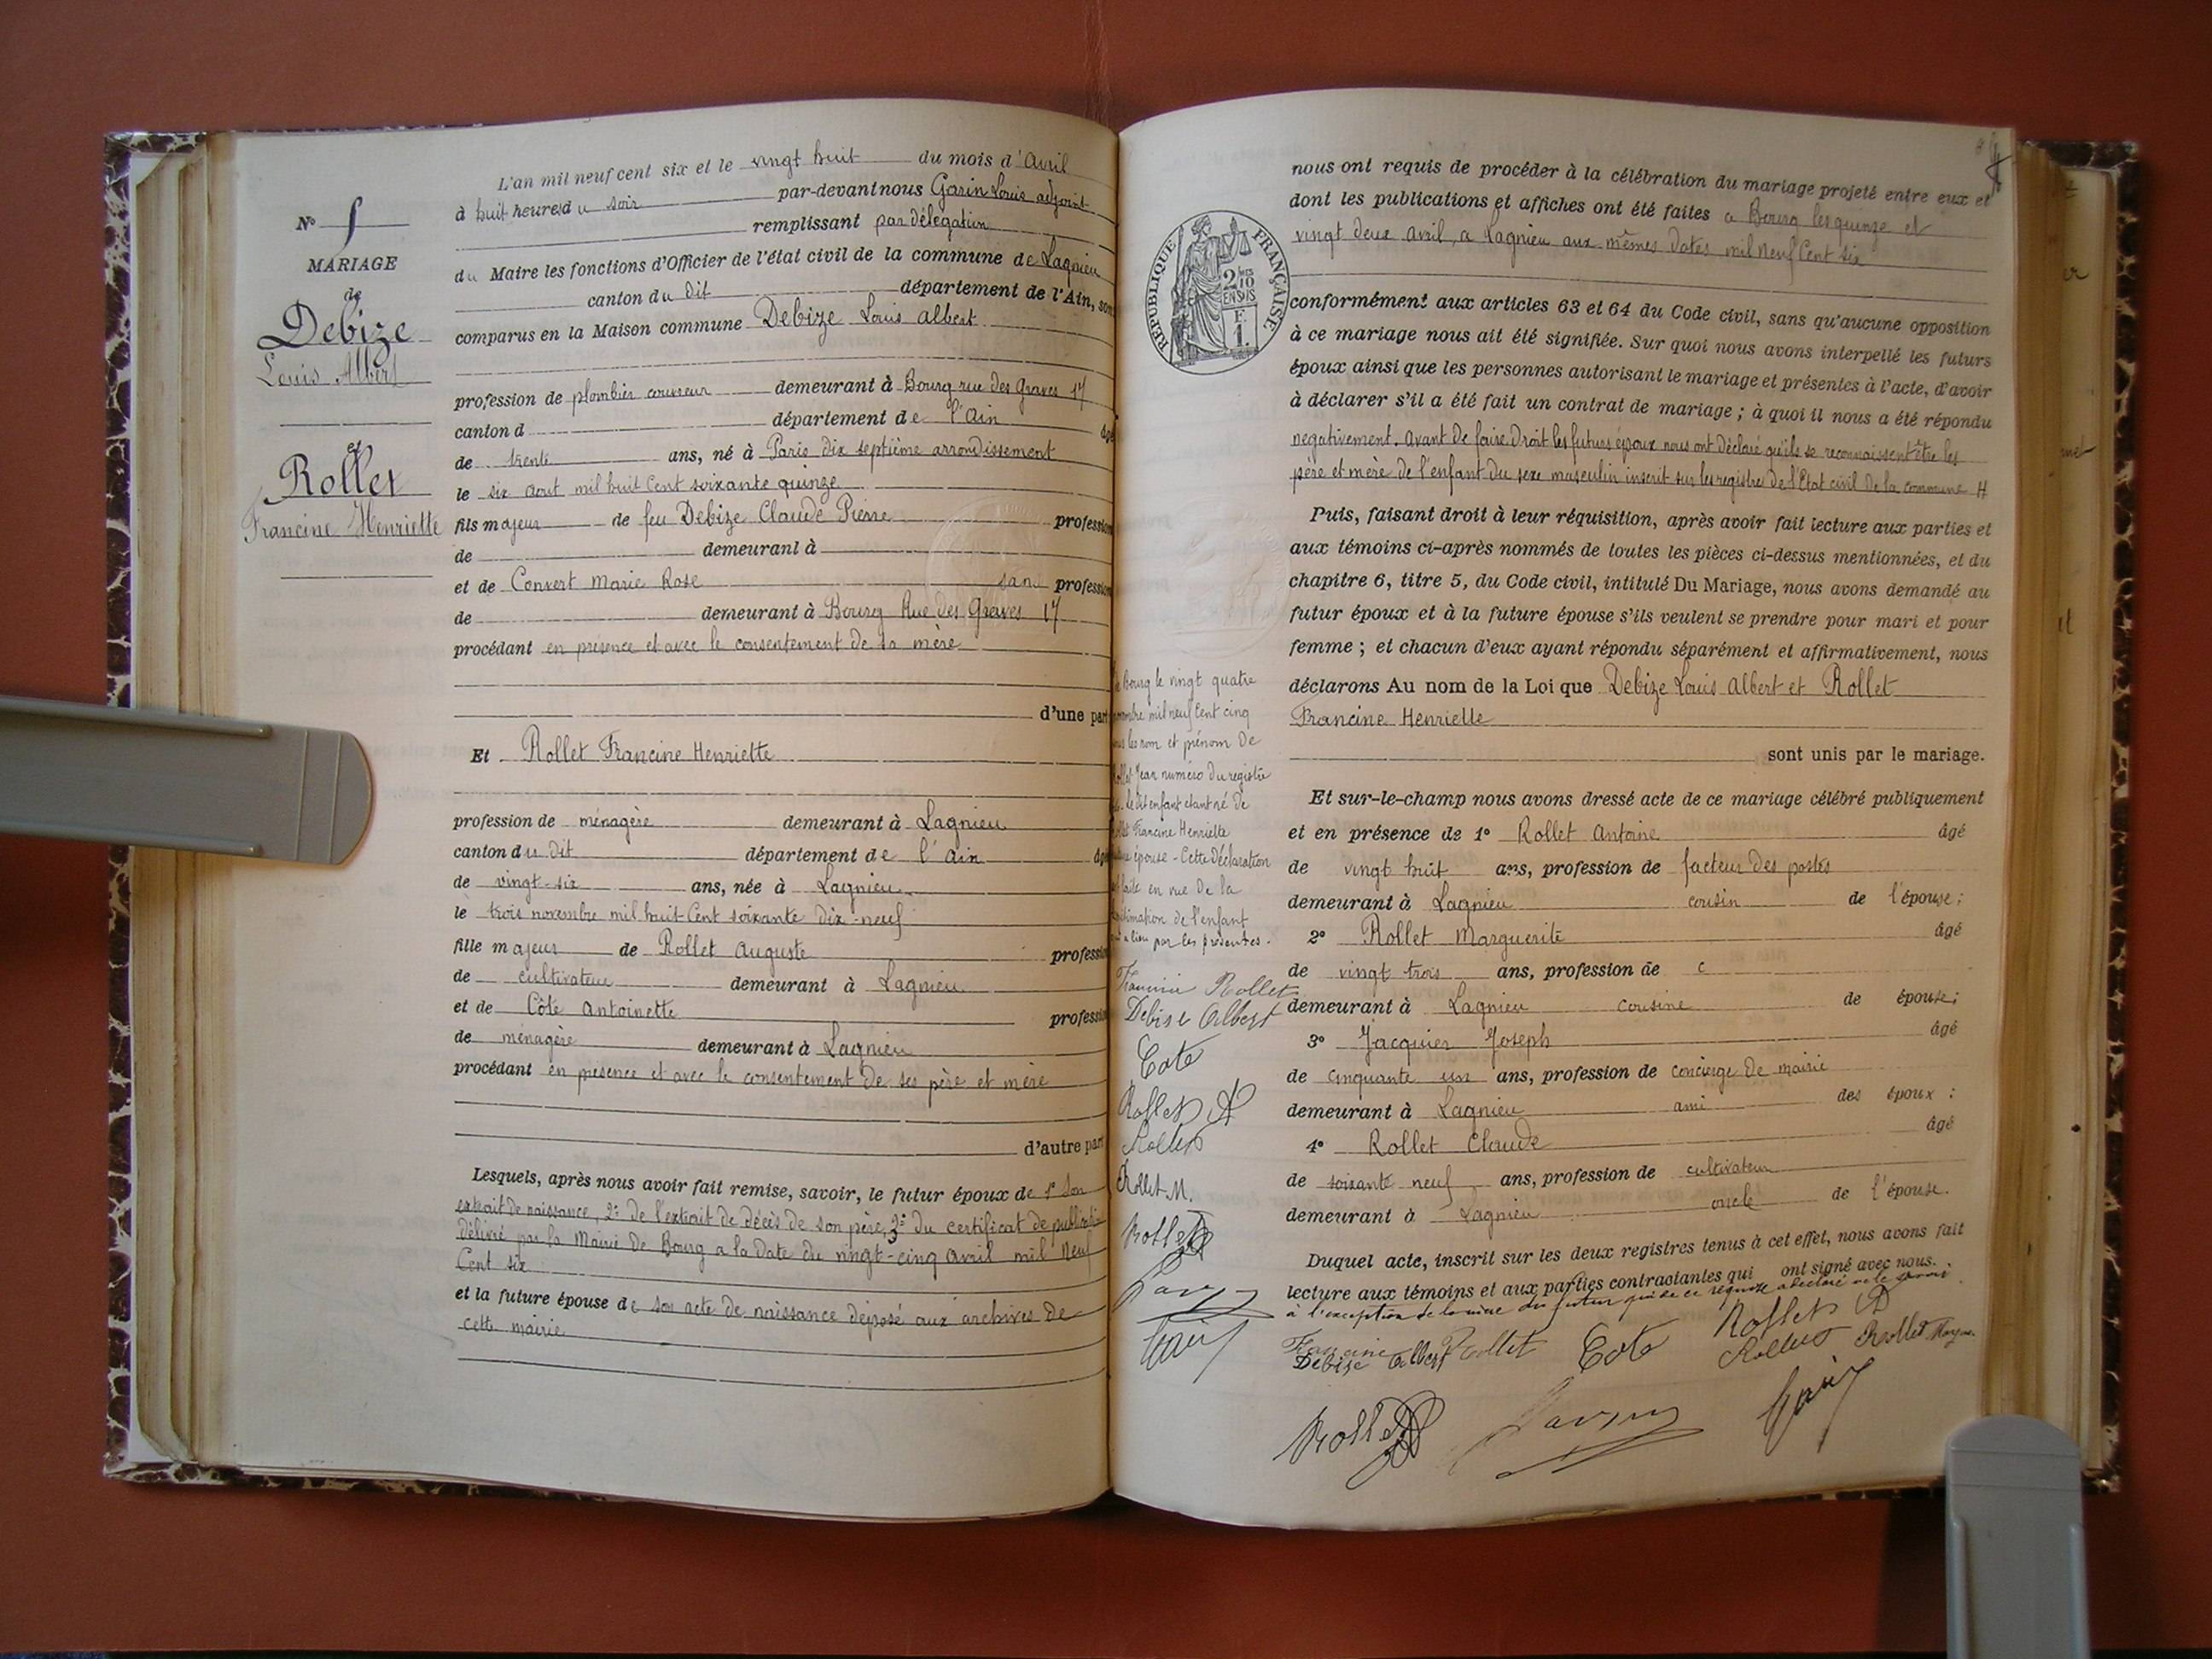 N° 5
MARIAGE
de
Debize
Louis Albert
et
Rollet
Francine Henriette
L'an mil neuf cent six et le vingt huit du mois d'Avril
à huit heures du soir par-devant nous Garin Louis adjoint
remplissant par délégation
du Maire les fonctions d'Officier de l'état civil de la commune de Lagnieu
canton du dit département de l'Ain, son
comparus en la Maison commune Debize Louis Albert
profession de plombier couvreur demeurant à Bourg rue des Graves 17
canton d département de l'Ain âgé
de trente ans, né à Paris dix septième arrondissement
le six aout mil huit Cent soixante quinze
fils majeur de feu Debize Claude Pierre profession
de demeurant à
et de Convert Marie Rose sans profession
de demeurant à Bourg Rue des Graves 17
procédant en présence et avec le consentement de sa mère
d'une part
Et Rollet Francine Henriette
profession de ménagère demeurant à Lagnieu
canton du dit département de l'Ain âgé
de vingt-six ans, née à Lagnieu
le trois novembre mil huit Cent soixante dix-neuf
fille majeur de Rollet Auguste profession
de cultivateur demeurant à Lagnieu
et de Côte Antoinette profession
de ménagère demeurant à Lagnieu
procédant en présence et avec le consentement de ses père et mère
d'autre part
Lesquels, après nous avoir fait remise, savoir, le futur époux de 1° Son
extrait de naissance, 2° de l'extrait de décès de son père, 3° du certificat de
délivré par la Mairie de Bourg a la date du vingt-cinq avril mil Neuf
Cent six
et la future épouse de son acte de naissance déposé aux archives de
cette mairie
REPUBLIQUE FRANÇAISE
2/10 EN SUS
F. 1.
nous ont requis de procéder à la célébration du mariage projeté entre eux et
dont les publications et affiches ont été faites a Bourg les quinze et
vingt deux avril, a Lagnieu aux mêmes dates mil neuf Cent six
conformément aux articles 63 et 64 du Code civil, sans qu'aucune opposition
à ce mariage nous ait été signifiée. Sur quoi nous avons interpellé les futurs
époux ainsi que les personnes autorisant le mariage et présentes à l'acte, d'avoir
à déclarer s'il a été fait un contrat de mariage ; à quoi il nous a été répondu
negativement. avant de faire droit les futurs époux nous ont déclaré qu'ils se reconnaissent être les
père et mère de l'enfant du sexe masculin inscrit sur les registres de l'Etat civil de la commune H
Bourg le vingt quatre
mil neuf Cent cinq
les nom et prénom de
Jean numéro du registre
le dit enfant etant né de
Francine Henriette
épouse - Cette déclaration
faite en vue de la
de l'enfant
a lieu par les présentes.
Francine Rollet
Debise Albert
Cote
Rollet A
Rollet
Rollet M.
Rollet
Garin
Puis, faisant droit à leur réquisition, après avoir fait lecture aux parties et
aux témoins ci-après nommés de toutes les pièces ci-dessus mentionnées, et du
chapitre 6, titre 5, du Code civil, intitulé Du Mariage, nous avons demandé au
futur époux et à la future épouse s'ils veulent se prendre pour mari et pour
femme ; et chacun d'eux ayant répondu séparément et affirmativement, nous
déclarons Au nom de la Loi que Debize Louis Albert et Rollet
Francine Henriette
sont unis par le mariage.
Et sur-le-champ nous avons dressé acte de ce mariage célébré publiquement
et en présence de 1° Rollet Antoine âgé
de vingt huit ans, profession de facteur des postes
demeurant à Lagnieu cousin de l'épouse ;
2° Rollet Marguerite âgé
de vingt trois ans, profession de c
demeurant à Lagnieu cousine de épouse ;
3° Jacquier Joseph âgé
de cinquante un ans, profession de concierge de mairie
demeurant à Lagnieu ami des époux :
4° Rollet Claude âgé
de soixante neuf ans, profession de cultivateur
demeurant à Lagnieu oncle de l'épouse.
Duquel acte, inscrit sur les deux registres tenus à cet effet, nous avons fait
lecture aux témoins et aux parties contractantes qui ont signé avec nous.
à l'exception de la mère du futur qui de ce requise a déclaré ne le savoir
Francine Rollet
Debise Albert
Cote
Rollet A
Rollet
Rollet
Rollet
Garin